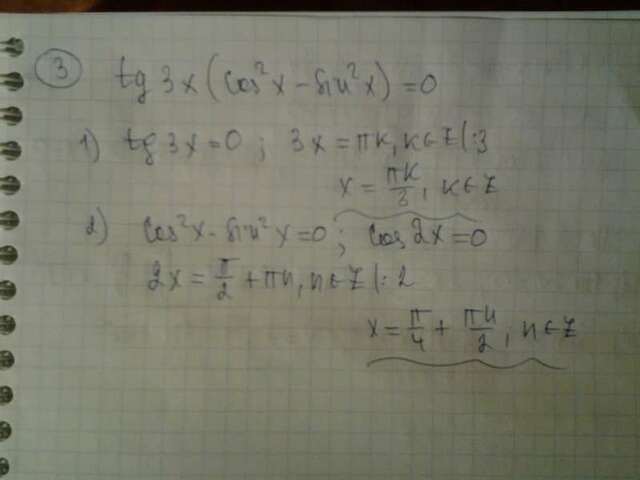 ③ tg 3x (cos²x - sin²x) = 0
1) tg 3x = 0 ; 3x = πk, k ∈ Z |: 3
x = πk/3, k ∈ Z
2) cos²x - sin²x = 0 ; cos 2x = 0
2x = π/2 + πn, n ∈ Z |: 2
x = π/4 + πn/2, n ∈ Z